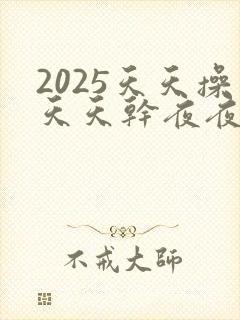 2025天天操
天天幹夜夜
不戒大師